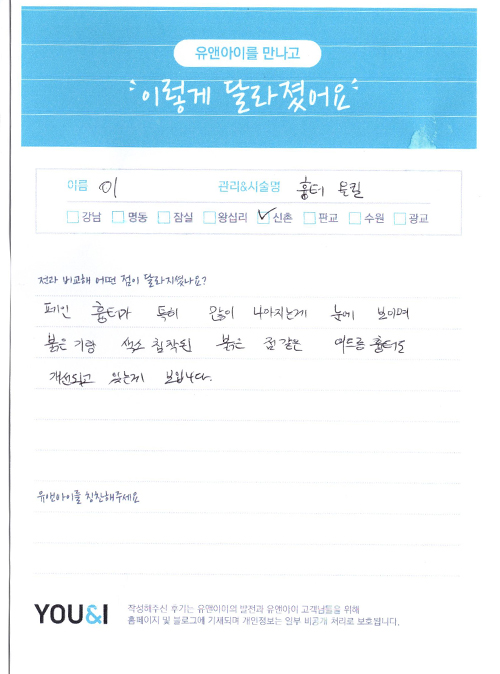 유앤아이를 만나고
이렇게 달라졌어요
이름 이 관리&시술명 흉터
강남 명동 잠실 왕십리 신촌 판교 수원 광교
전과 비교해 어떤 점이 달라지셨나요?
패인 흉터가 특히 많이 나아지는게 눈에 보이며
붉은 기랑 색소 침착된 붉은 점 같은 여드름 흉터도
개선되고 있는게 보입니다.
유앤아이를 칭찬해주세요
YOU&I
작성해주신 후기는 유앤아이의 발전과 유앤아이 고객님들을 위해
홈페이지 및 블로그에 기재되며 개인정보는 일부 비공개 처리로 보호됩니다.